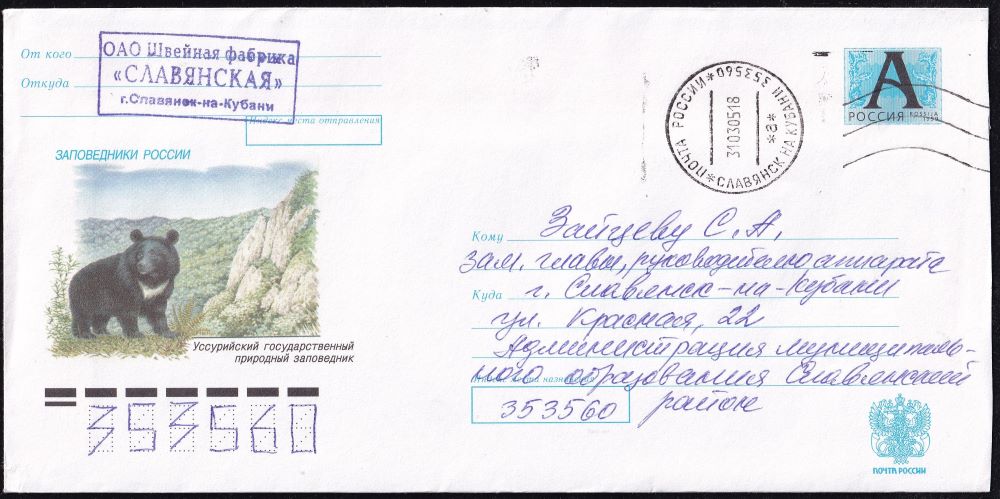 От кого
Откуда
ОАО Швейная фабрика
«СЛАВЯНСКАЯ»
г.Славянск-на-Кубани
Индекс места отправления
ЗАПОВЕДНИКИ РОССИИ
Уссурийский государственный
природный заповедник
353560
ПОЧТА РОССИИ * 353560 * СЛАВЯНСК НА КУБАНИ
31030518
*а*
А
РОССИЯ ROSSIJA
1999
Кому Зайцеву С. А.
зам. главы, руководителю аппарата
Куда г. Славянск-на-Кубани
ул. Красная, 22
Администрация муниципаль-
ного образования Славянский
Индекс места назначения
353560 район
ПОЧТА РОССИИ